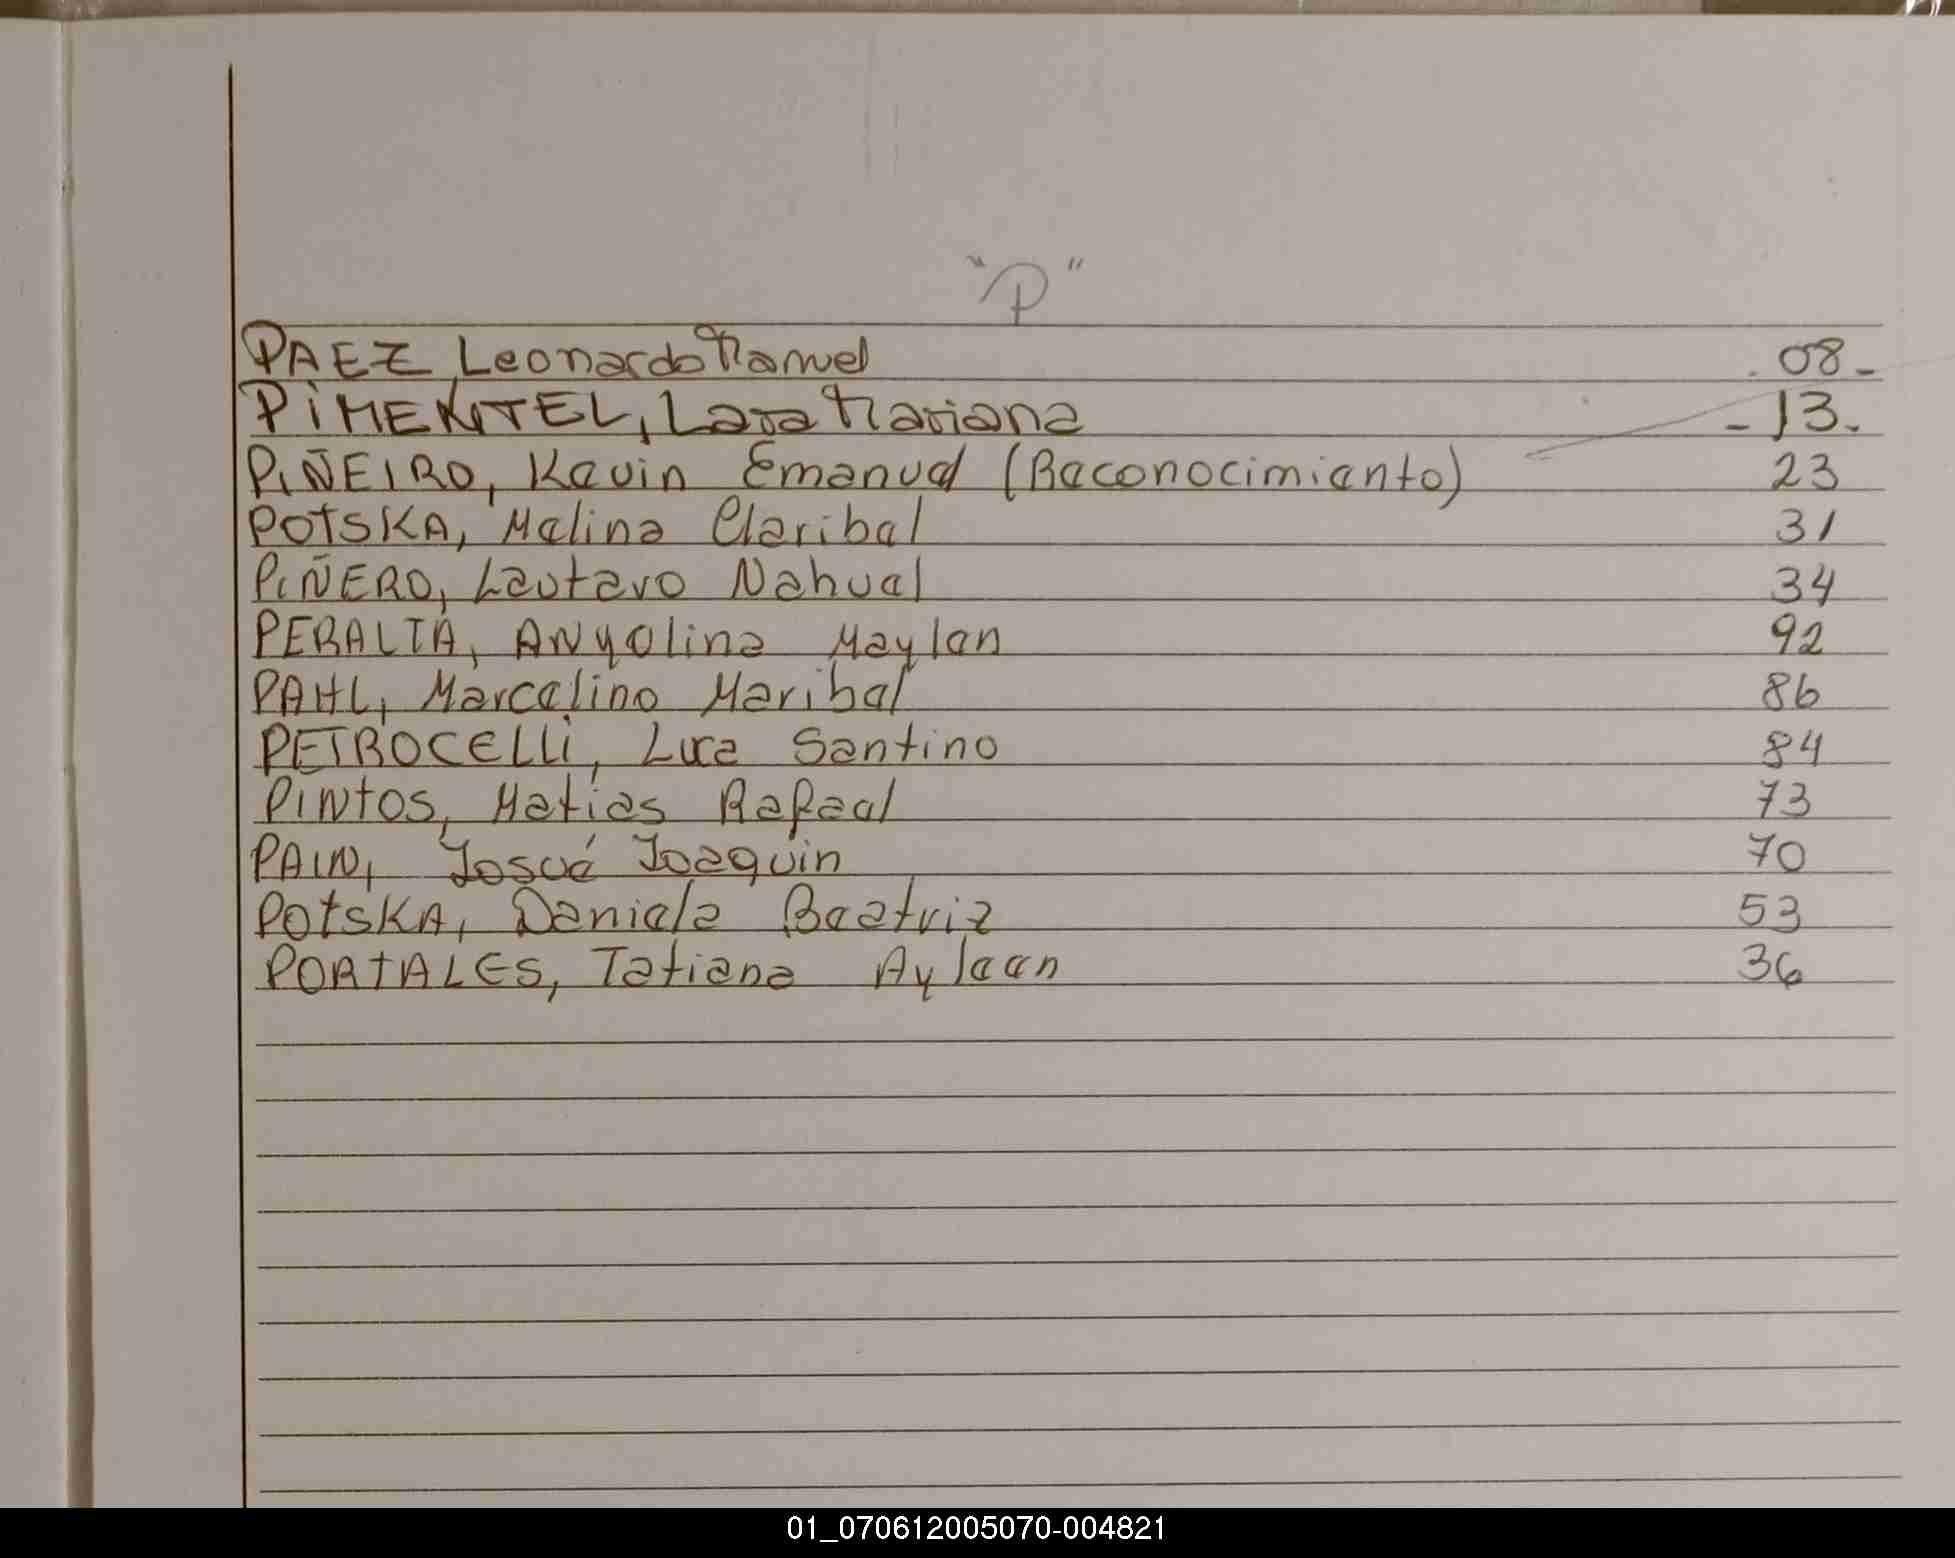 "P"
PAEZ, Leonardo Manuel . 08 -
PIMENTEL, Lara Mariana - 13.
PIÑEIRO, Kevin Emanuel (Reconocimiento) 23
POTSKA, Melina Claribel 31
PIÑERO, Lautaro Nahuel 34
PERALTA, ANYOlina Maylen 92
PAHL, Marcelino Maribel 86
PETROCELLi, Luca Santino 84
PINtOS, Matias Rafael 73
PAIN, Josué Joaquin 70
POtSKA, Daniela Beatriz 53
PORTALES, Tatiana Ayleen 36
01_070612005070-004821